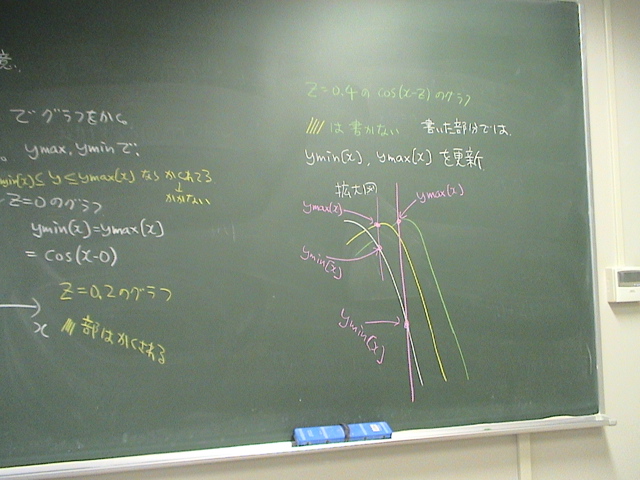 意.
で グラフをかく。
。 ymax, yminで、
min[x]≦y≦ymax[x] なら かくれてる
↓
かかない
Z=0のグラフ
ymin[x]=ymax[x]
= cos(x-0)
Z=0.2のグラフ
x
部はかくされる
Z=0.4の cos(x-z) のグラフ
//// は 書かない 書いた部分では、
ymin[x], ymax[x] を更新
拡大図
ymax[x]
ymax[x]
ymin[x]
ymin[x]